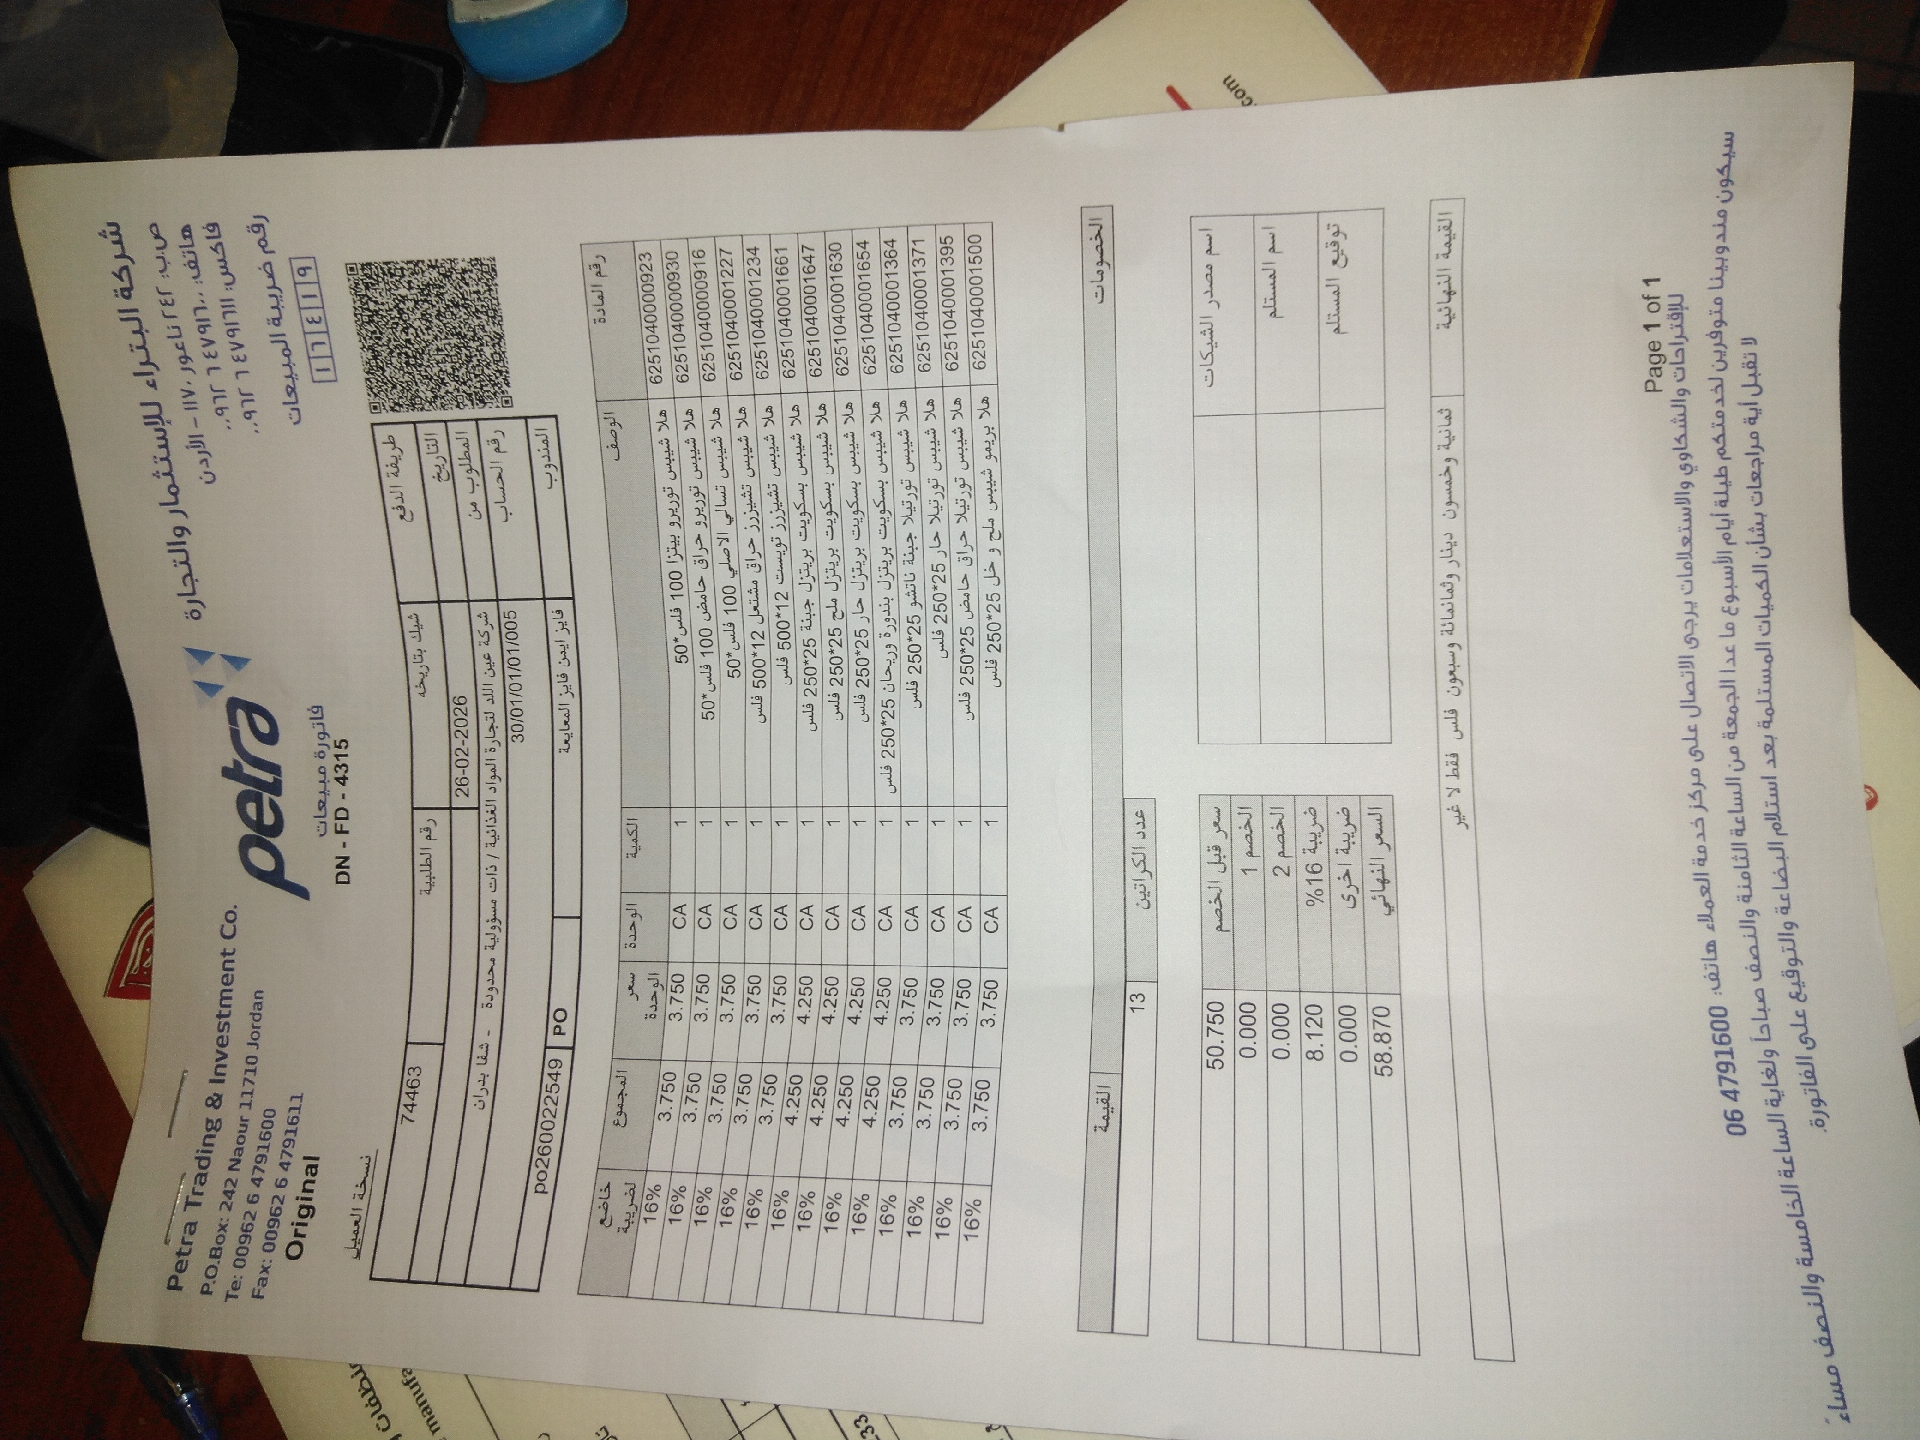 Petra Trading & Investment Co.
P.O.Box: 242 Naour 11710 Jordan
Te: 00962 6 4791600
Fax: 00962 6 4791611
Original
petra
شركة البتراء للإستثمار والتجارة
ص.ب: ٢٤٢ ناعور ١١٧١٠ - الأردن
هاتف: ٤٧٩١٦٠٠ ٦ ٠٠٩٦٢
فاكس: ٤٧٩١٦١١ ٦ ٠٠٩٦٢
رقم ضريبة المبيعات
١ ٦ ٤ ١ ٩
فاتورة مبيعات
DN - FD - 4315
نسخة العميل
طريقة الدفع شيك بتاريخه رقم الطلبية 74463
التاريخ 26-02-2026
المطلوب من شركة عين اللد لتجارة المواد الغذائية / ذات مسؤولية محدودة - شفا بدران
رقم الحساب 30/01/01/005
المندوب فايز ايمن فايز المعايعة PO po2600022549
رقم المادة الوصف الكمية الوحدة سعر الوحدة المجموع خاضع لضريبة
6251040000923 هلا شيبس توريرو بيتزا 100 فلس*50 1 CA 3.750 3.750 16%
6251040000930 هلا شيبس توريرو حراق حامض 100 فلس*50 1 CA 3.750 3.750 16%
6251040000916 هلا شيبس تسالي الاصلي 100 فلس*50 1 CA 3.750 3.750 16%
6251040001227 هلا شيبس تشيززز حراق مشتعل 12*500 فلس 1 CA 3.750 3.750 16%
6251040001234 هلا شيبس تشيززز تويست 12*500 فلس 1 CA 3.750 3.750 16%
6251040001661 هلا شيبس بسكويت بريتزل جبنة 25*250 فلس 1 CA 4.250 4.250 16%
6251040001647 هلا شيبس بسكويت بريتزل ملح 25*250 فلس 1 CA 4.250 4.250 16%
6251040001630 هلا شيبس بسكويت بريتزل حار 25*250 فلس 1 CA 4.250 4.250 16%
6251040001654 هلا شيبس بسكويت بريتزل بندورة وريحان 25*250 فلس 1 CA 4.250 4.250 16%
6251040001364 هلا شيبس تورتيلا جبنة ناتشو 25*250 فلس 1 CA 3.750 3.750 16%
6251040001371 هلا شيبس تورتيلا حار 25*250 فلس 1 CA 3.750 3.750 16%
6251040001395 هلا شيبس تورتيلا حراق حامض 25*250 فلس 1 CA 3.750 3.750 16%
6251040001500 هلا بريمو شيبس ملح و خل 25*250 فلس 1 CA 3.750 3.750 16%
الخصومات القيمة
عدد الكراتين 13
اسم مصدر الشيكات
اسم المستلم
توقيع المستلم
سعر قبل الخصم 50.750
الخصم 1 0.000
الخصم 2 0.000
ضريبة 16% 8.120
ضريبة اخرى 0.000
السعر النهائي 58.870
القيمة النهائية ثمانية وخمسون دينار وثمانمائة وسبعون فلس فقط لا غير
Page 1 of 1
للإقتراحات والشكاوي والاستعلامات يرجى الاتصال على مركز خدمة العملاء هاتف: 4791600 06
سيكون مندوبينا متوفرين لخدمتكم طيلة أيام الأسبوع ما عدا الجمعة من الساعة الثامنة والنصف صباحاً ولغاية الساعة الخامسة والنصف مساءً
لا تقبل أية مراجعات بشأن الكميات المستلمة بعد استلام البضاعة والتوقيع على الفاتورة.
.com
33